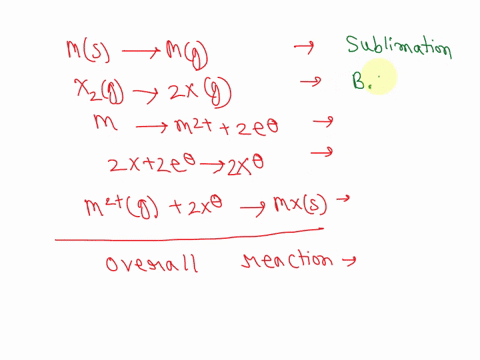 m(s) → m(g) → Sublimation
X₂(g) → 2X(g) → B.
m → m²⁺ + 2e⊖ →
2X + 2e⊖ → 2X⊖ →
m²⁺(g) + 2X⊖ → mx(s) →
overall reaction →